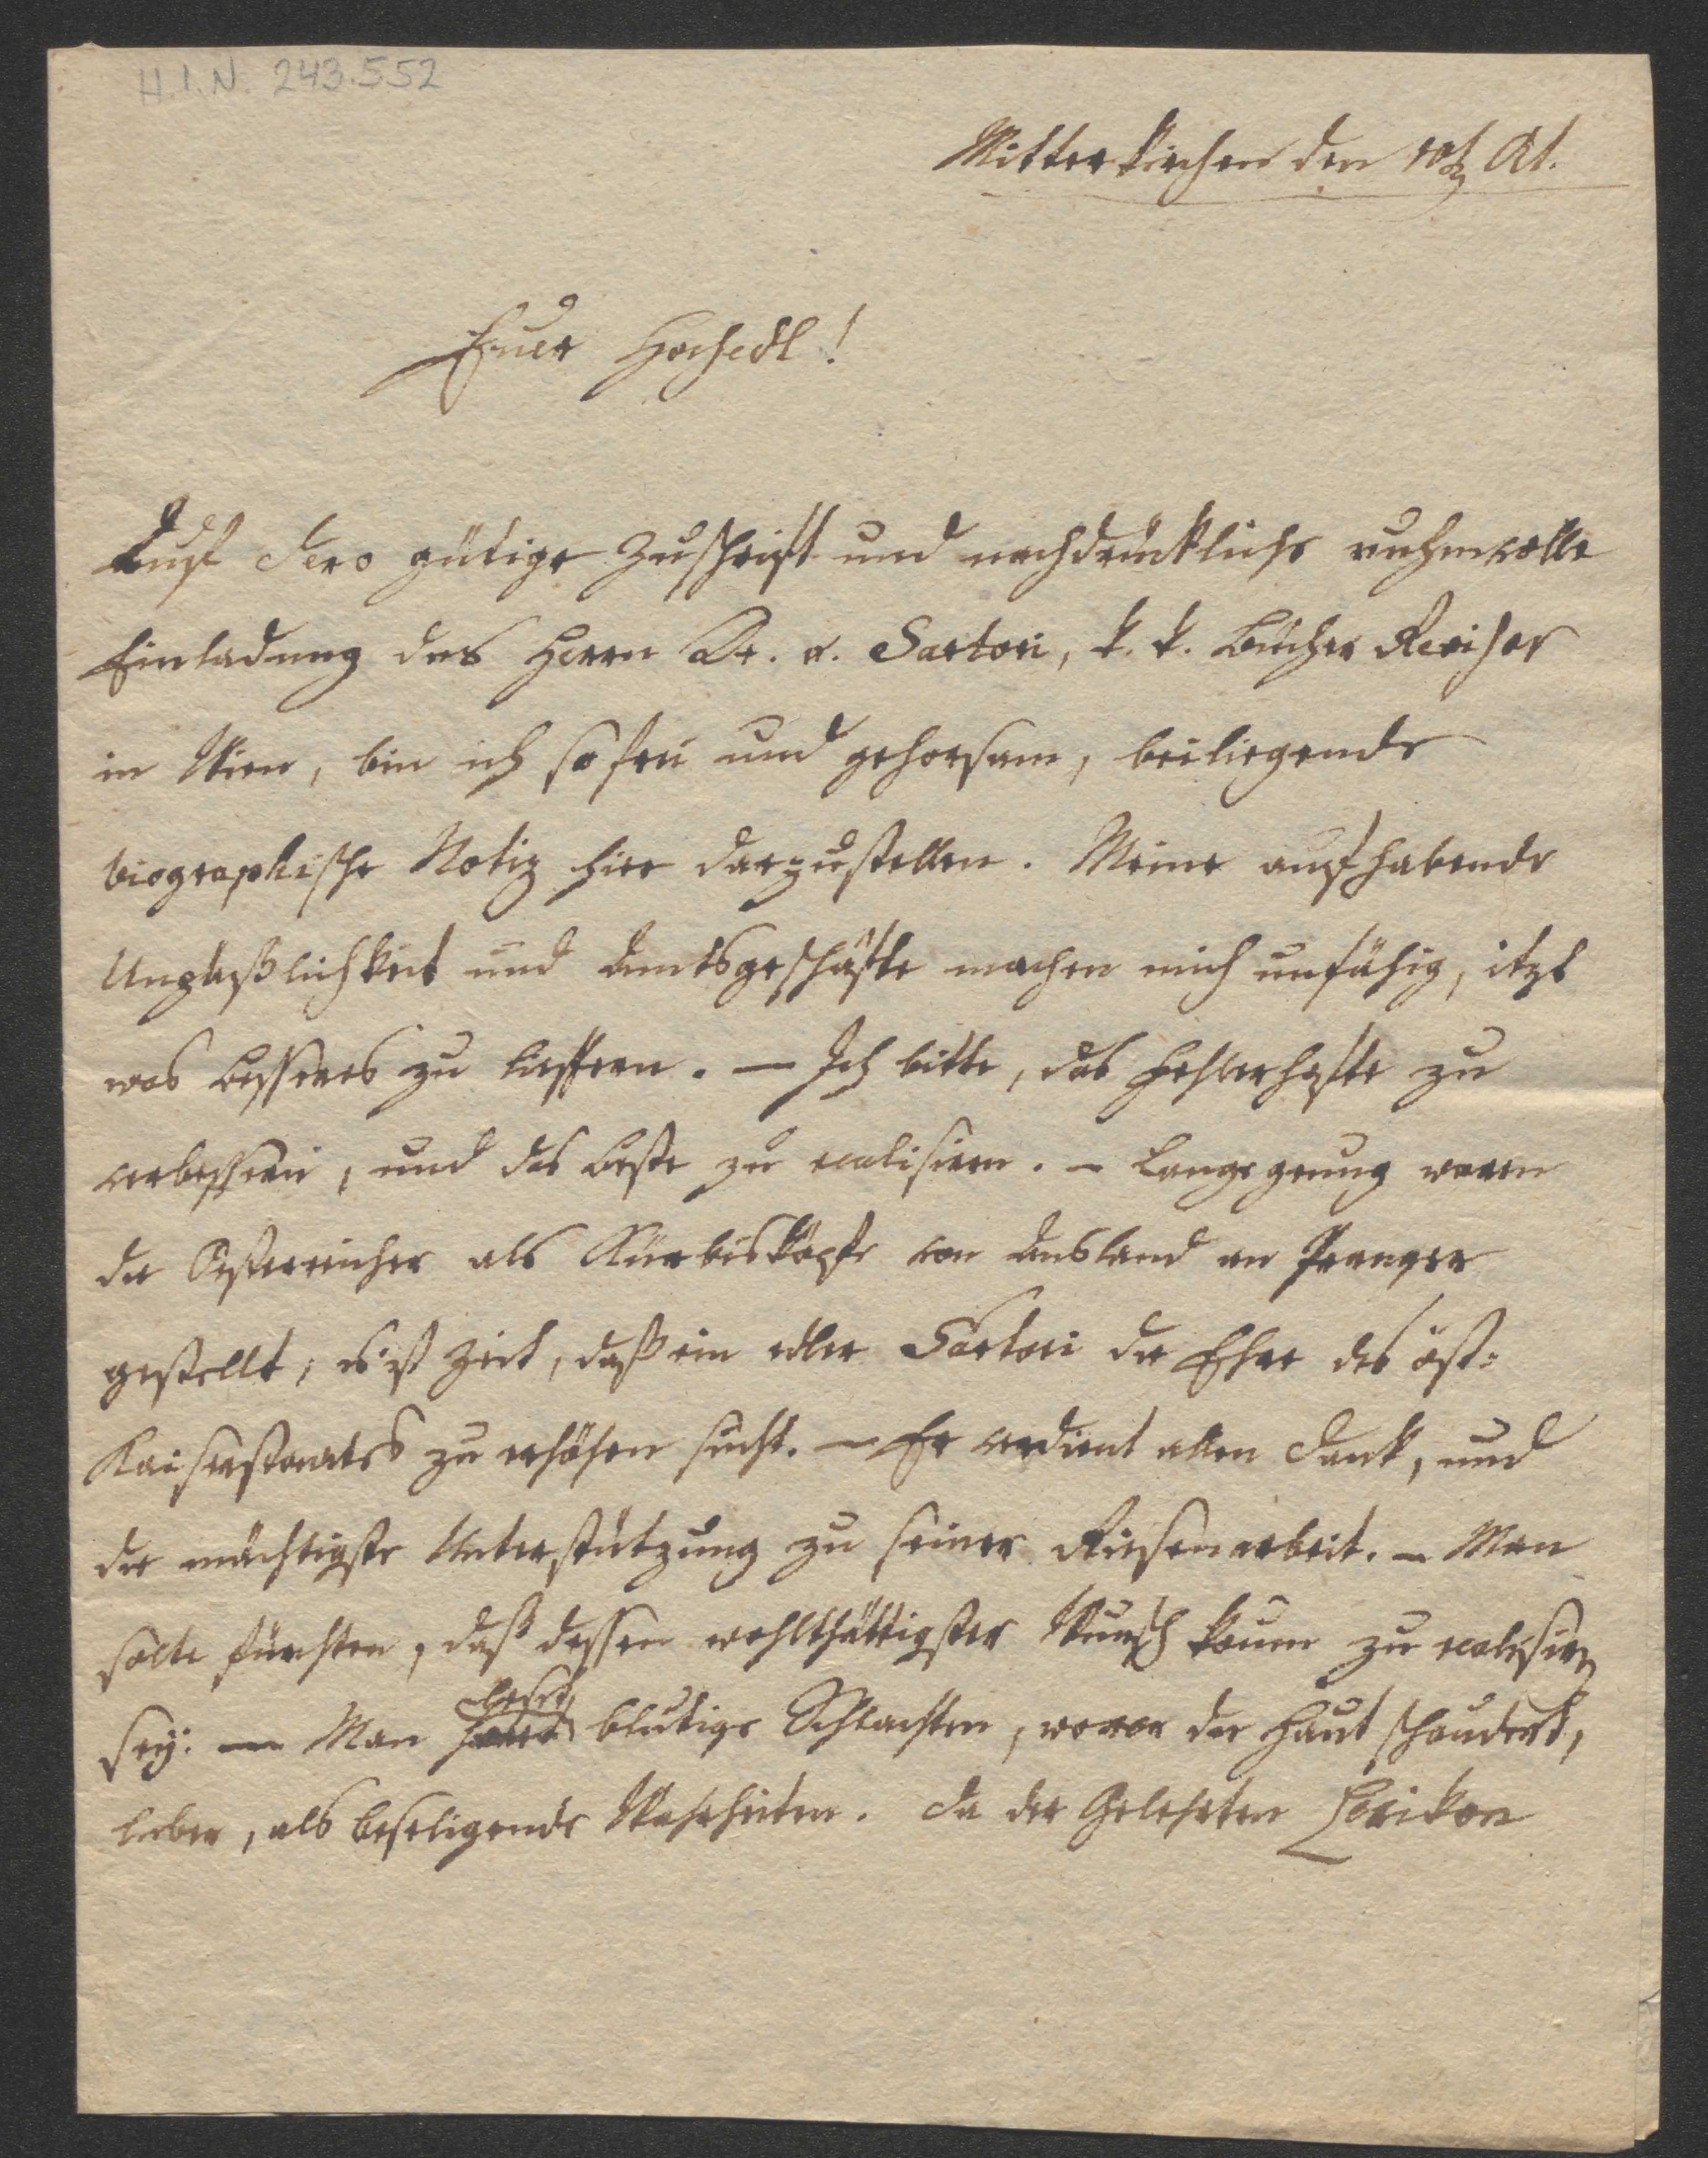 H.I.N. 243.552
Mitterkirchen den 10t Okt.
Euer Hochedl!
Auf Dero gütige Zuschrift und nachdrücklichs ruhmvolle
Einladung des Herrn Dr. v. Sartori, k. k. Bücher Revisor
in Wien, bin ich so frei und gehorsam, beiliegende
biographische Notiz hier darzustellen. Meine aufhabende
Unpäßlichkeit und Amtsgeschäfte machen mich unfähig, itzt
was Besseres zu lieffern. — Ich bitte, das Fehlerhafte zu
verbessern, und das Beste zu realisiren. – Lange genug waren
die Österreicher als Kürbisköpfe von Ausland an Pranger
gestellt, es ist Zeit, daß ein edler Sartori die Ehre des öst:
Kaiserstaats zu erhöhen sucht. – Er verdient allen Dank, und
die mächtigste Unterstützung zu seiner Riesenarbeit. – Man
solte fürchten, daß dessen wohlthättigster Wunsch kaum zu realisirn
sey: — Man leset blutige Schlachten, wovor die Haut schaudert,
lieber, als beseligende Wahrheiten. Da der Gelehrten Lexikon